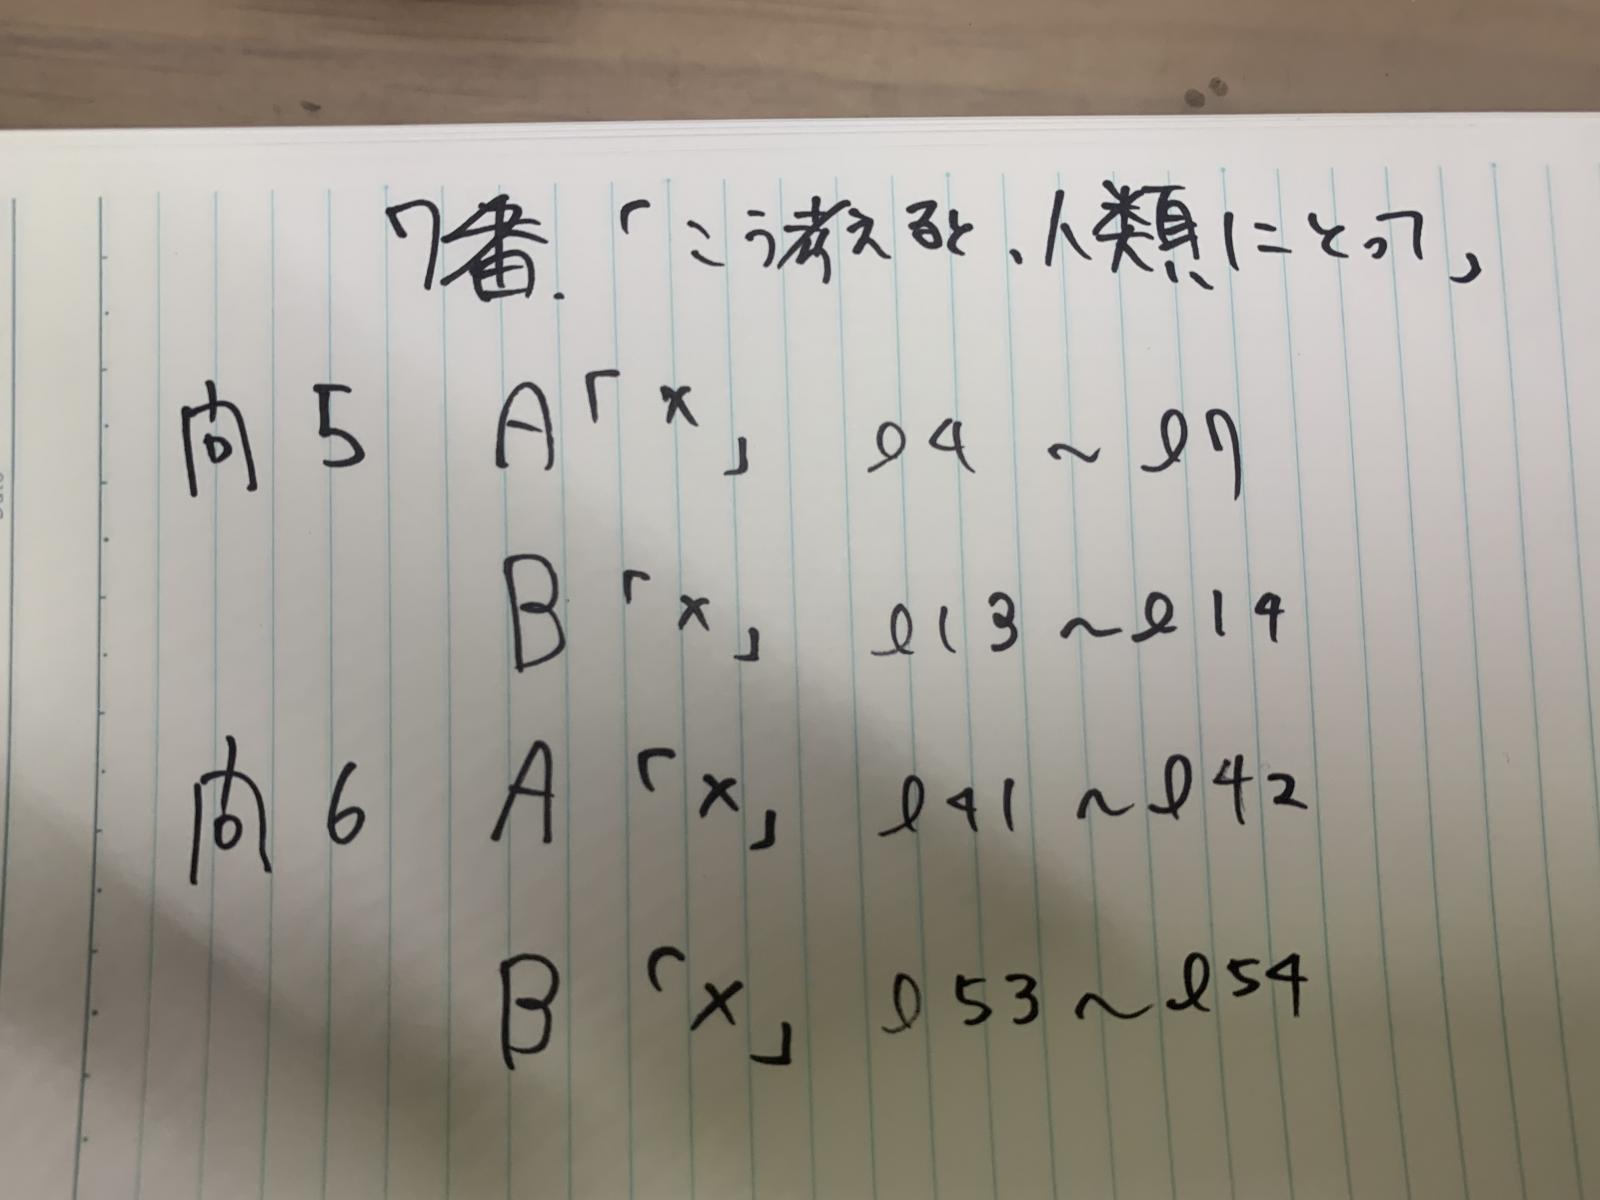 7番.「こう考えると、人類にとって」
問5 A「x」 l4 ~ l7
B「x」 l13 ~ l14
問6 A「x」 l41 ~ l42
B「x」 l53 ~ l54